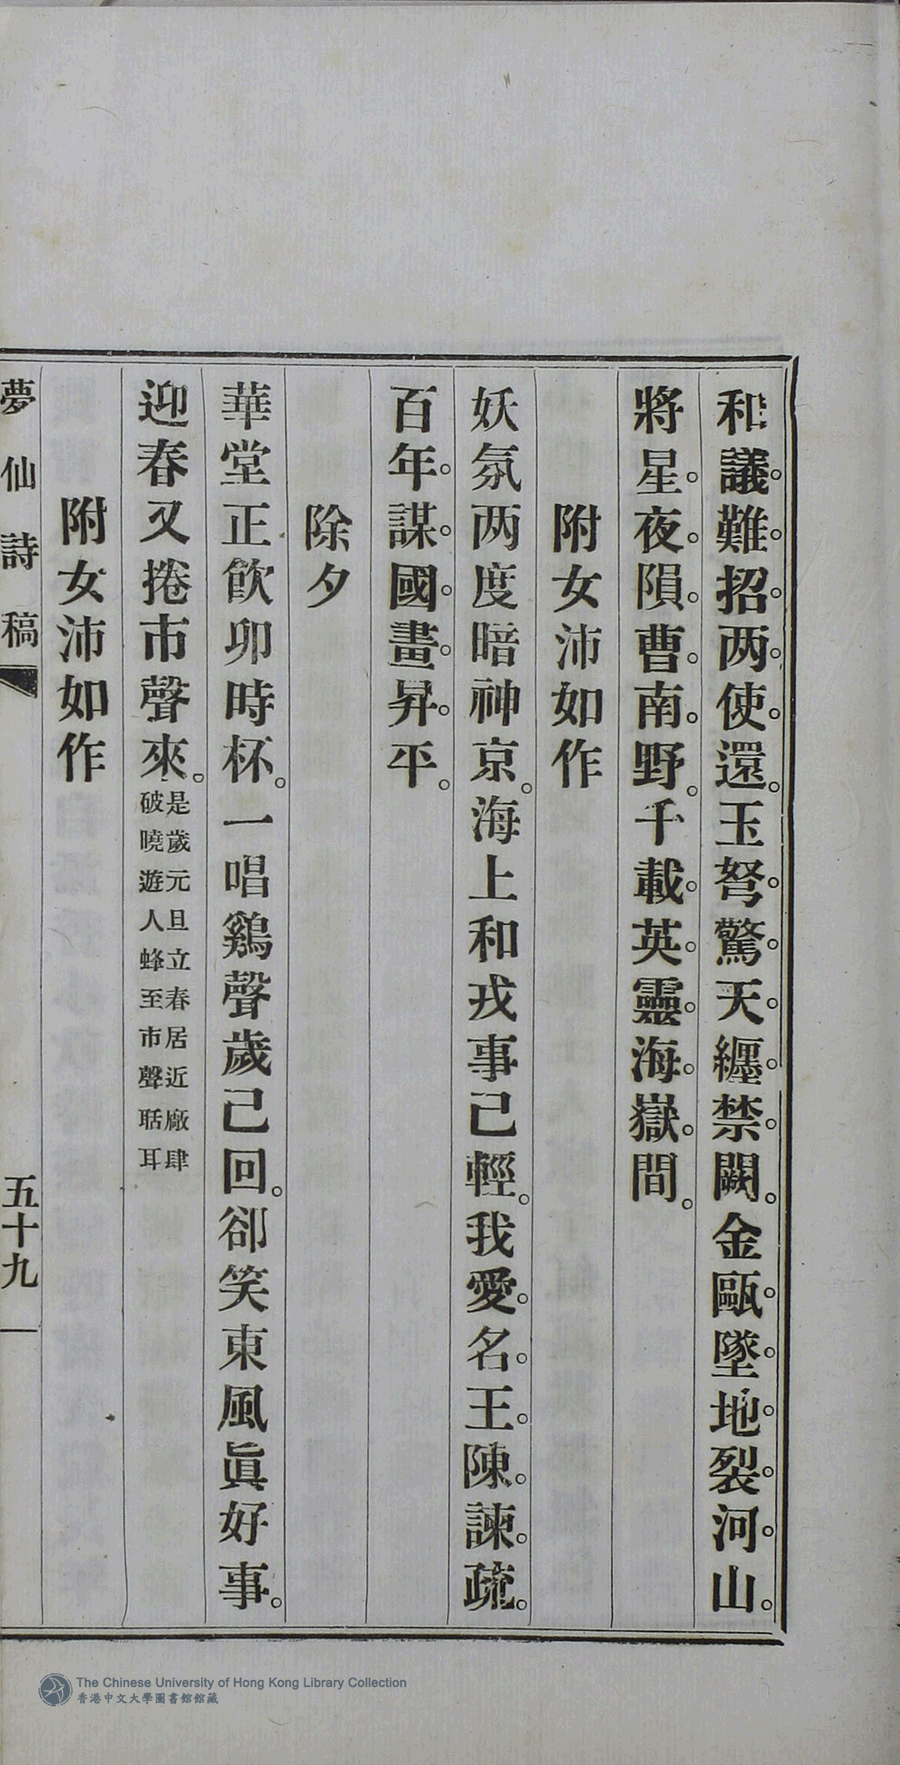 和議難招两使還。玉弩驚天纒禁闕。金甌墜地裂河山。
將星夜隕曹南野。千載英靈海嶽間。
附女沛如作
妖氛两度暗神京。海上和戎事己輕。我愛名王陳諫疏。
百年謀國畫昇平。
除夕
華堂正飲卯時杯。一唱鷄聲歲己回。卻笑東風眞好事。
迎春又捲市聲來。是歲元旦立春居近廠肆
破曉遊人蜂至市聲聒耳
附女沛如作
夢仙詩稿
五十九
The Chinese University of Hong Kong Library Collection
香港中文大學圖書館館藏